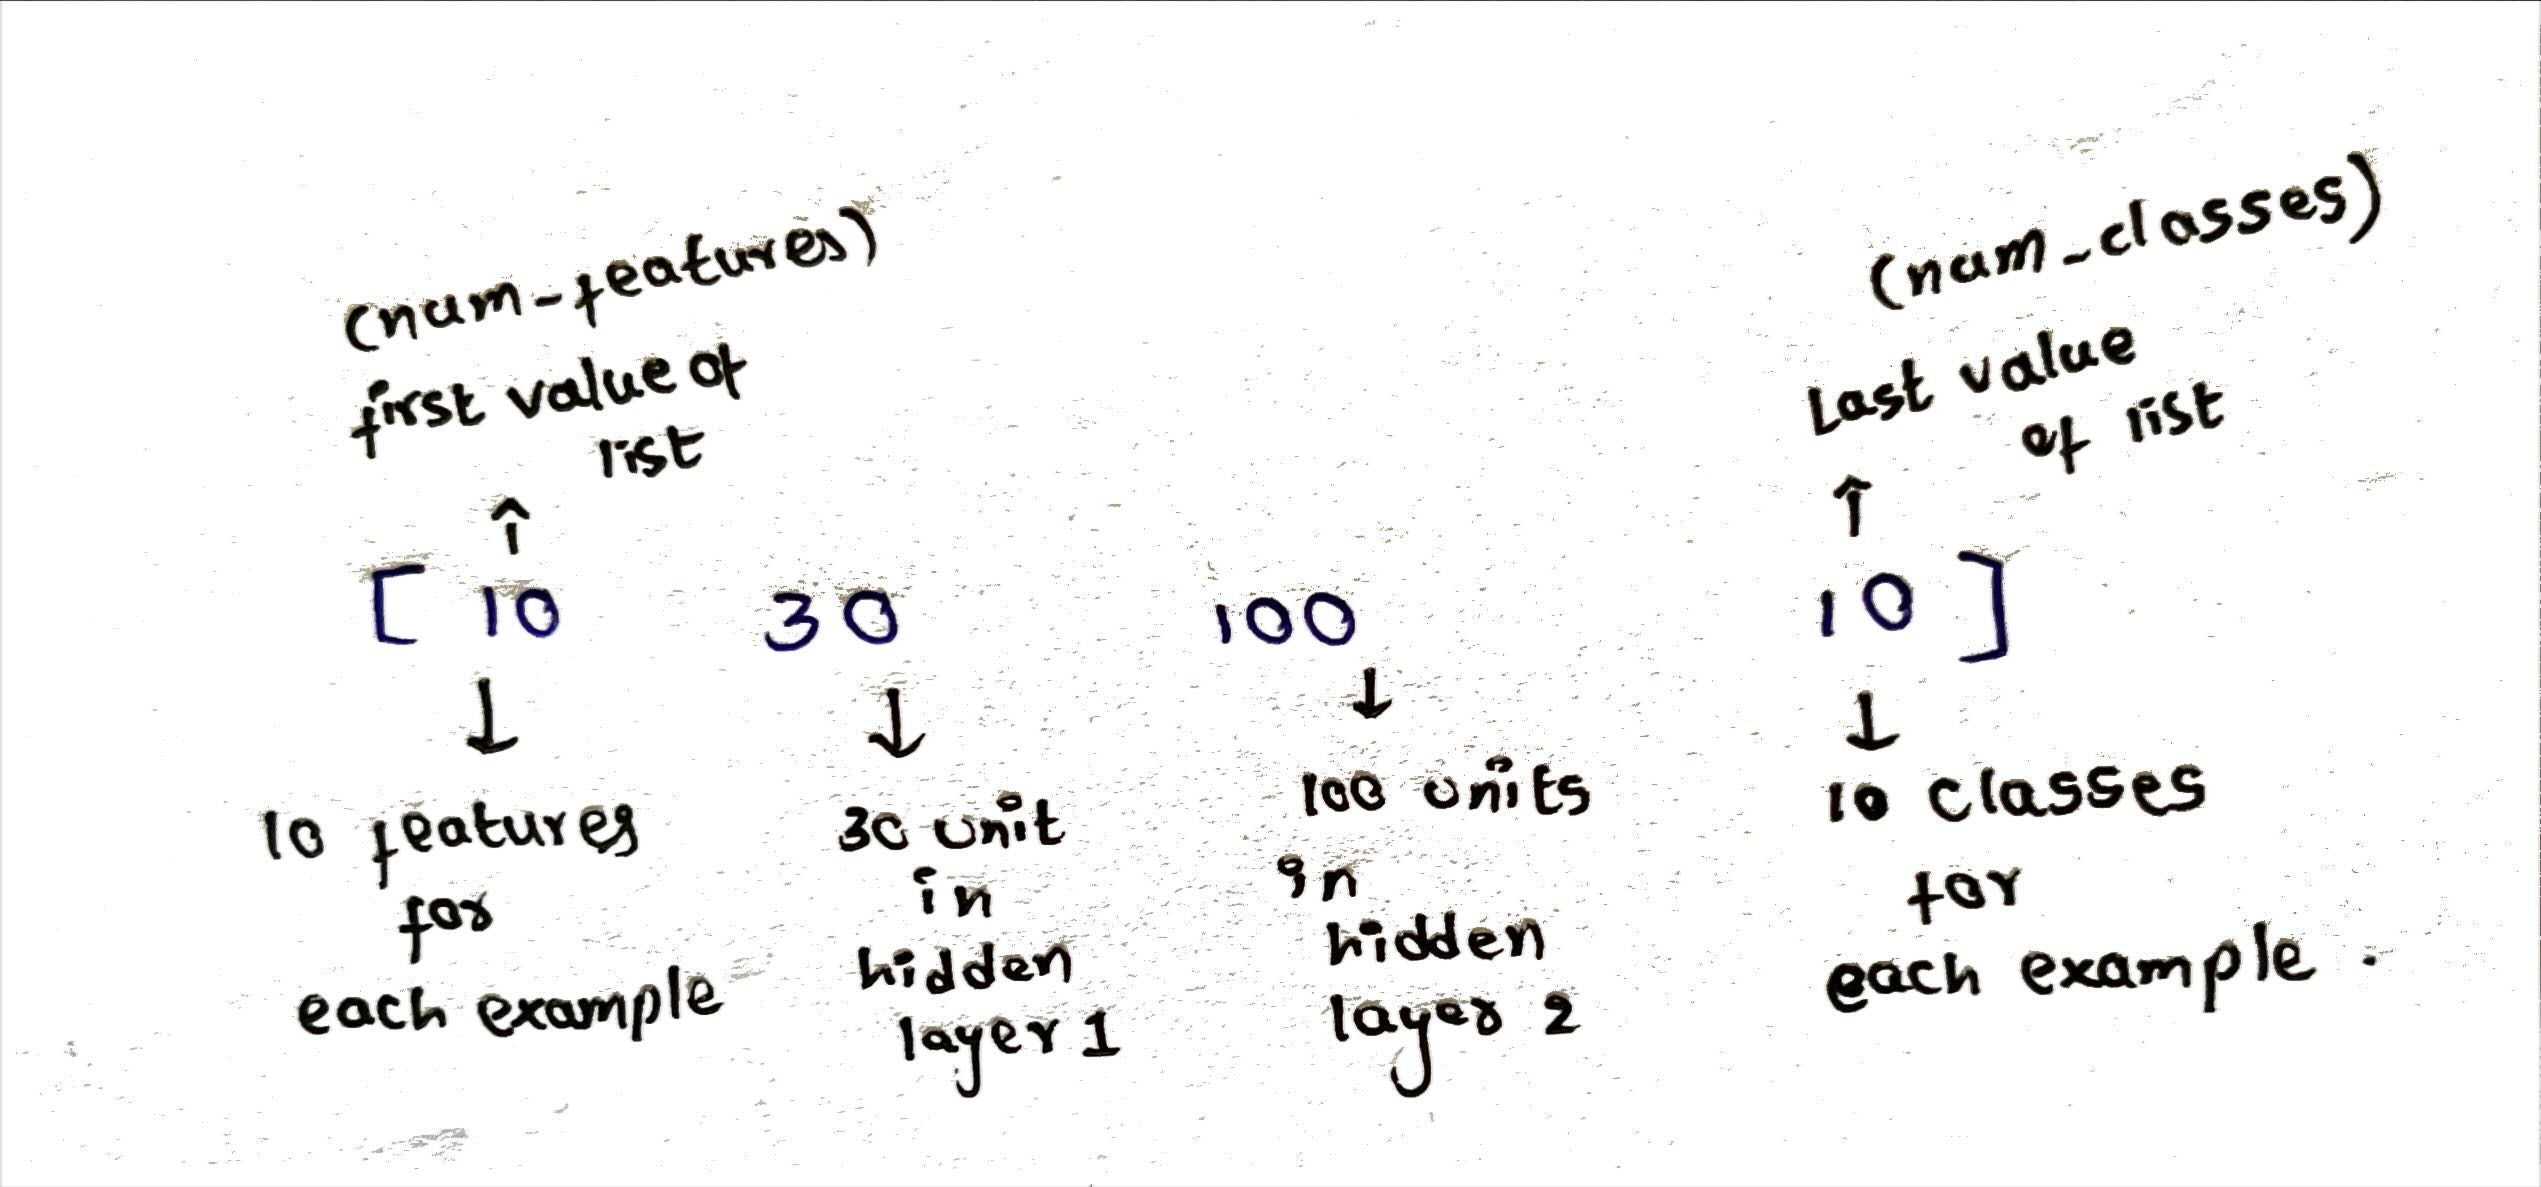 (num-features)
first value of
list
(num_classes)
Last value
of list
[ 10 30 100 10 ]
10 features
for
each example
30 unit
in
hidden
layer 1
100 units
in
hidden
layer 2
10 classes
for
each example.